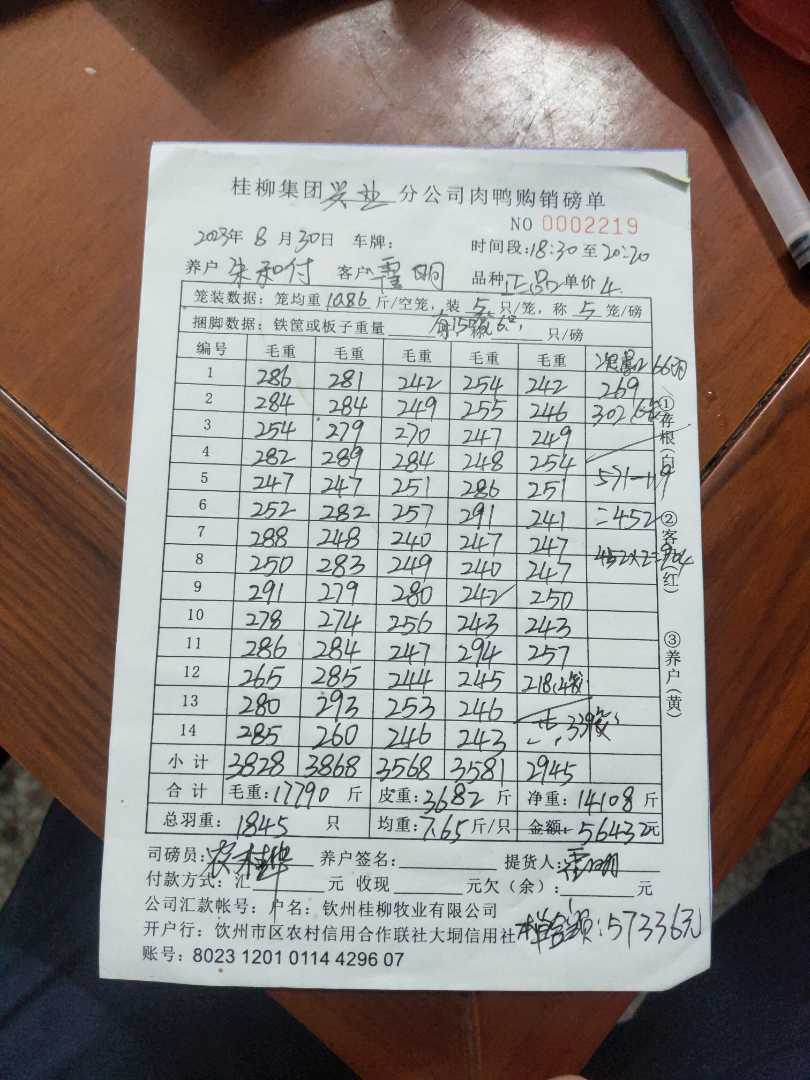 桂柳集团兴业分公司肉鸭购销磅单
NO 0002219
2023年8月30日 车牌： 时间段：18:30至20:20
养户 朱和付 客户 雪明 品种 正品 单价 4.
笼装数据：笼均重 10.86 斤/空笼，装 5 只/笼，称 5 笼/磅
捆脚数据：铁筐或板子重量 只/磅
编号 毛重 毛重 毛重 毛重 毛重 66羽
1 286 281 242 254 242 269
2 284 284 249 255 246 302
3 254 279 270 247 249
4 282 289 284 248 254
5 247 247 251 286 251 571-119
6 252 282 257 291 241 =452
7 288 248 240 247 247
8 250 283 249 240 247 452×2=904
9 291 279 280 242 250
10 278 274 256 243 243
11 286 284 247 294 257
12 265 285 244 245 218.4
13 280 293 253 246
14 285 260 246 243
小计 3828 3868 3568 3581 2945
合计 毛重：17790 斤 皮重：3682 斤 净重：14108 斤
总羽重：1845 只 均重：7.65 斤/只 金额：56432元
司磅员： 养户签名： 提货人：雪明
付款方式：汇 元 收现 元欠（余）： 元
公司汇款帐号：户名：钦州桂柳牧业有限公司
开户行：饮州市区农村信用合作联社大垌信用社
：57336元
账号：8023 1201 0114 4296 07
①存根（白）
②客户（红）
③养户（黄）